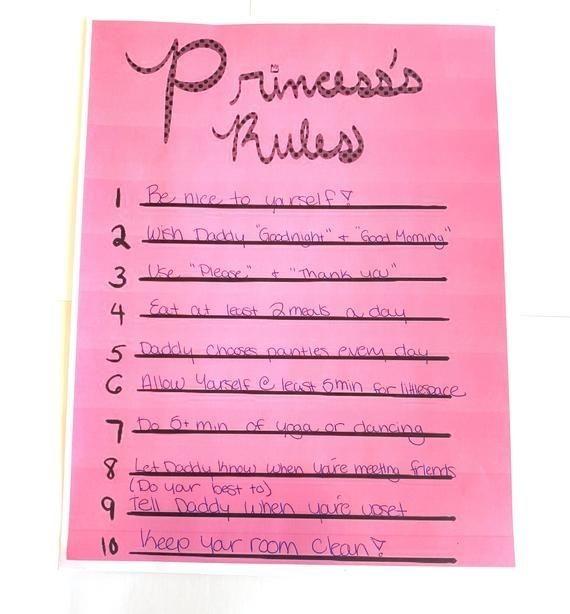 Princess's
Rules
1 Be nice to yourself!
2 Wish Daddy "Goodnight" + "Good Morning"
3 Use "Please" + "Thank you"
4 Eat at least 2 meals a day
5 Daddy chooses panties every day
6 Allow Yourself @ least 5min for littlespace
7 Do 5+ min of yoga or dancing
8 Let Daddy know when you're meeting friends
(Do your best to)
9 Tell Daddy when you're upset
10 Keep your room clean!